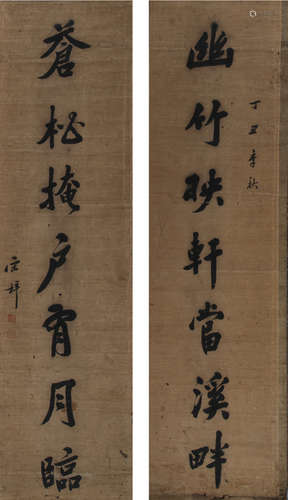 丁丑季秋
幽竹映軒當溪畔
蒼松掩户宵月臨